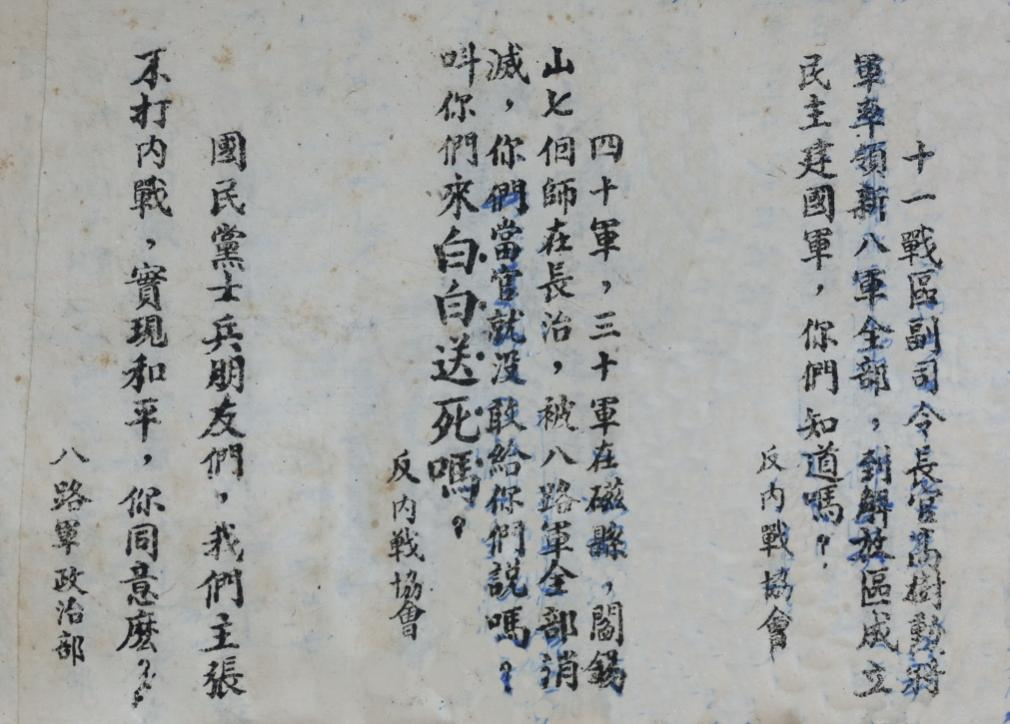 十一戰區副司令長官高樹勳將
軍率領新八軍全部，到解放區成立
民主建國軍，你們知道嗎？
反内戰協會
四十軍，三十軍在磁縣，閻錫
山七個師在長治，被八路軍全部消
滅，你們當官就没敢給你們説嗎？
叫你們來白白送死嗎？
反内戦協會
國民黨士兵朋友們，我們主張
不打内戰，實現和平，你同意麽？
八路軍政治部